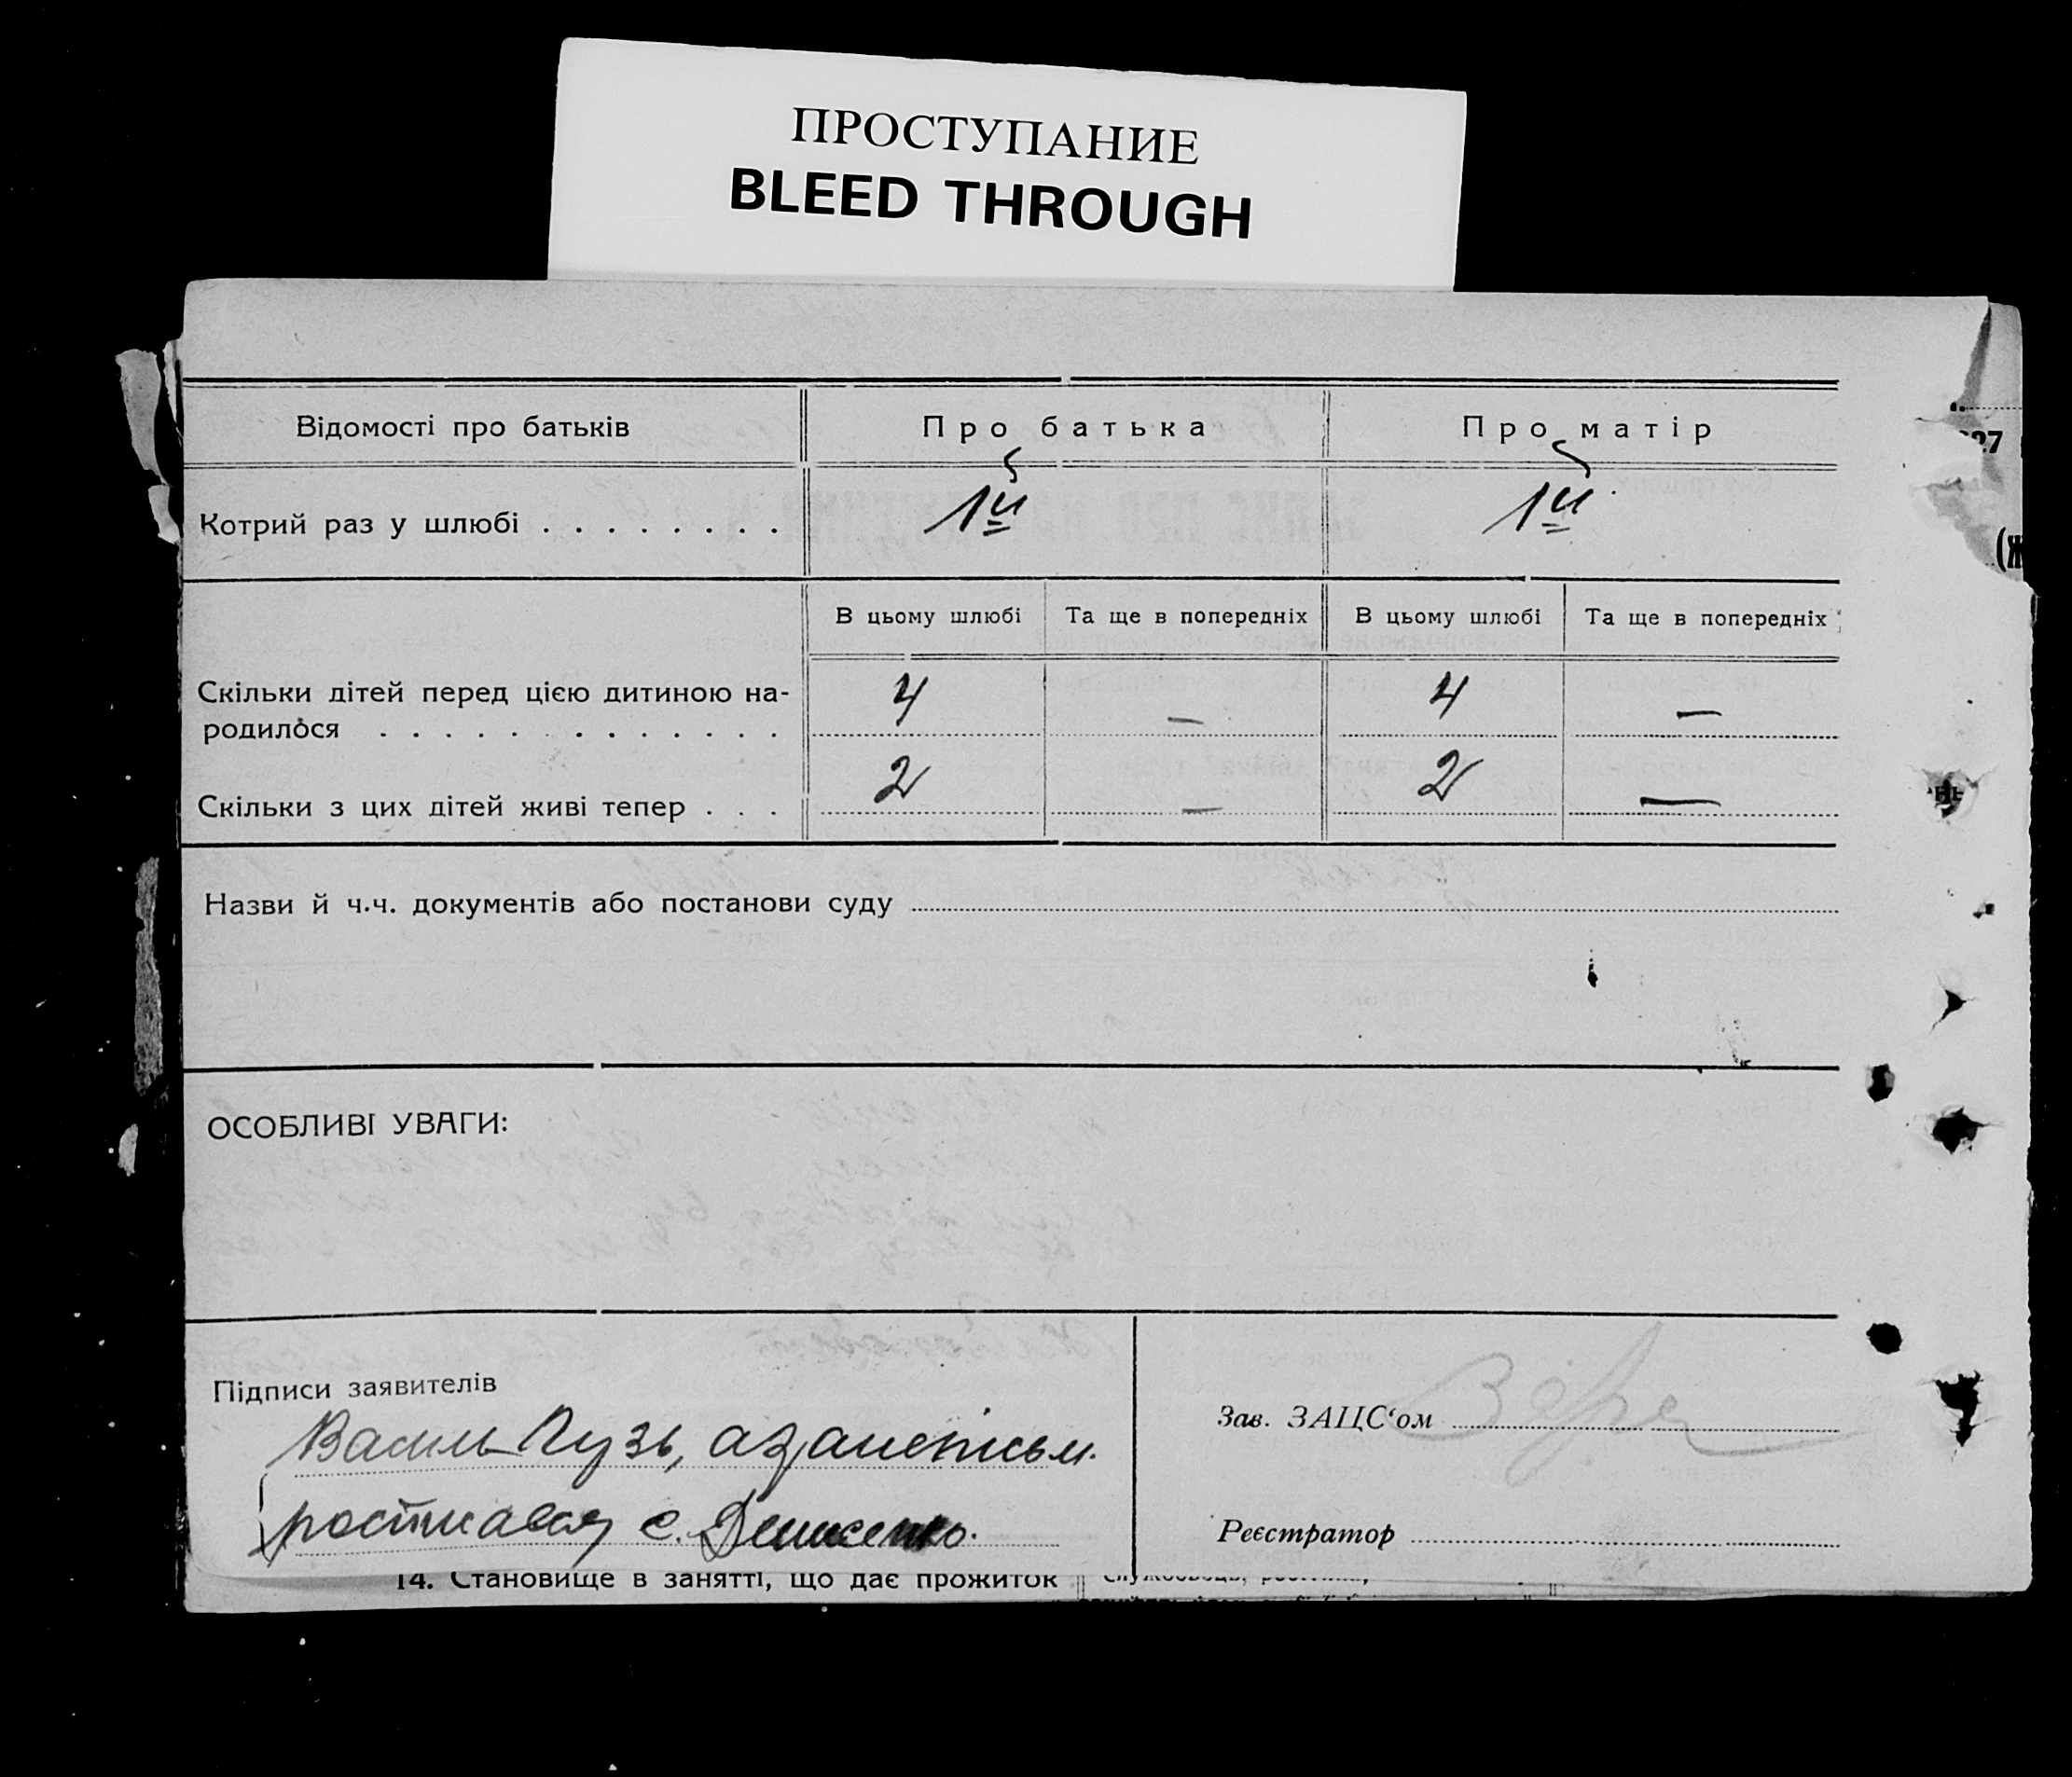 ПРОСТУПАНИЕ
BLEED THROUGH
Відомості про батьків
Про батька
Про матір
Котрий раз у шлюбі . . . . . . . .
1й
1й
В цьому шлюбі
Та ще в попередніх
В цьому шлюбі
Та ще в попередніх
Скільки дітей перед цією дитиною на-
родилося . . . . . . . . . . . . .
4
—
4
—
Скільки з цих дітей живі тепер . . .
2
—
2
—
Назви й ч.ч. документів або постанови суду
ОСОБЛИВІ УВАГИ:
Підписи заявителів
Василь Пузь, а за неписьм.
С. Денисенко.
Зав. ЗАЦС‘ом
Реєстратор
14. Становище в занятті, що дає прожиток
27
(ж